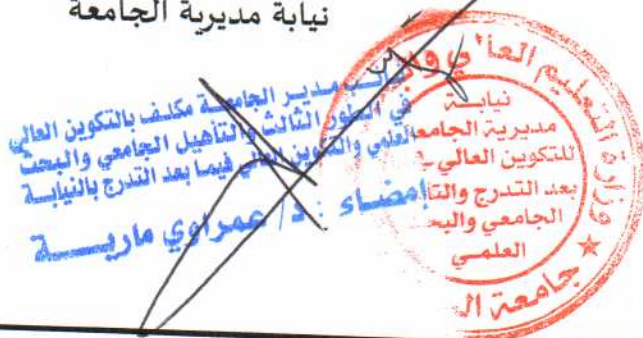 نيابة مديرية الجامعة
نائب مدير الجامعة مكلف بالتكوين العالي
في الطور الثالث والتأهيل الجامعي والبحث
العلمي والتكوين العالي فيما بعد التدرج بالنيابة
إمضاء : د/ عمراوي ماريــة
وزارة التعليم العالي والب
جامعة ال
نيابــة
مديرية الجامعـ
للتكوين العالي
بعد التدرج والتا
الجامعي والبحـ
العلمـي